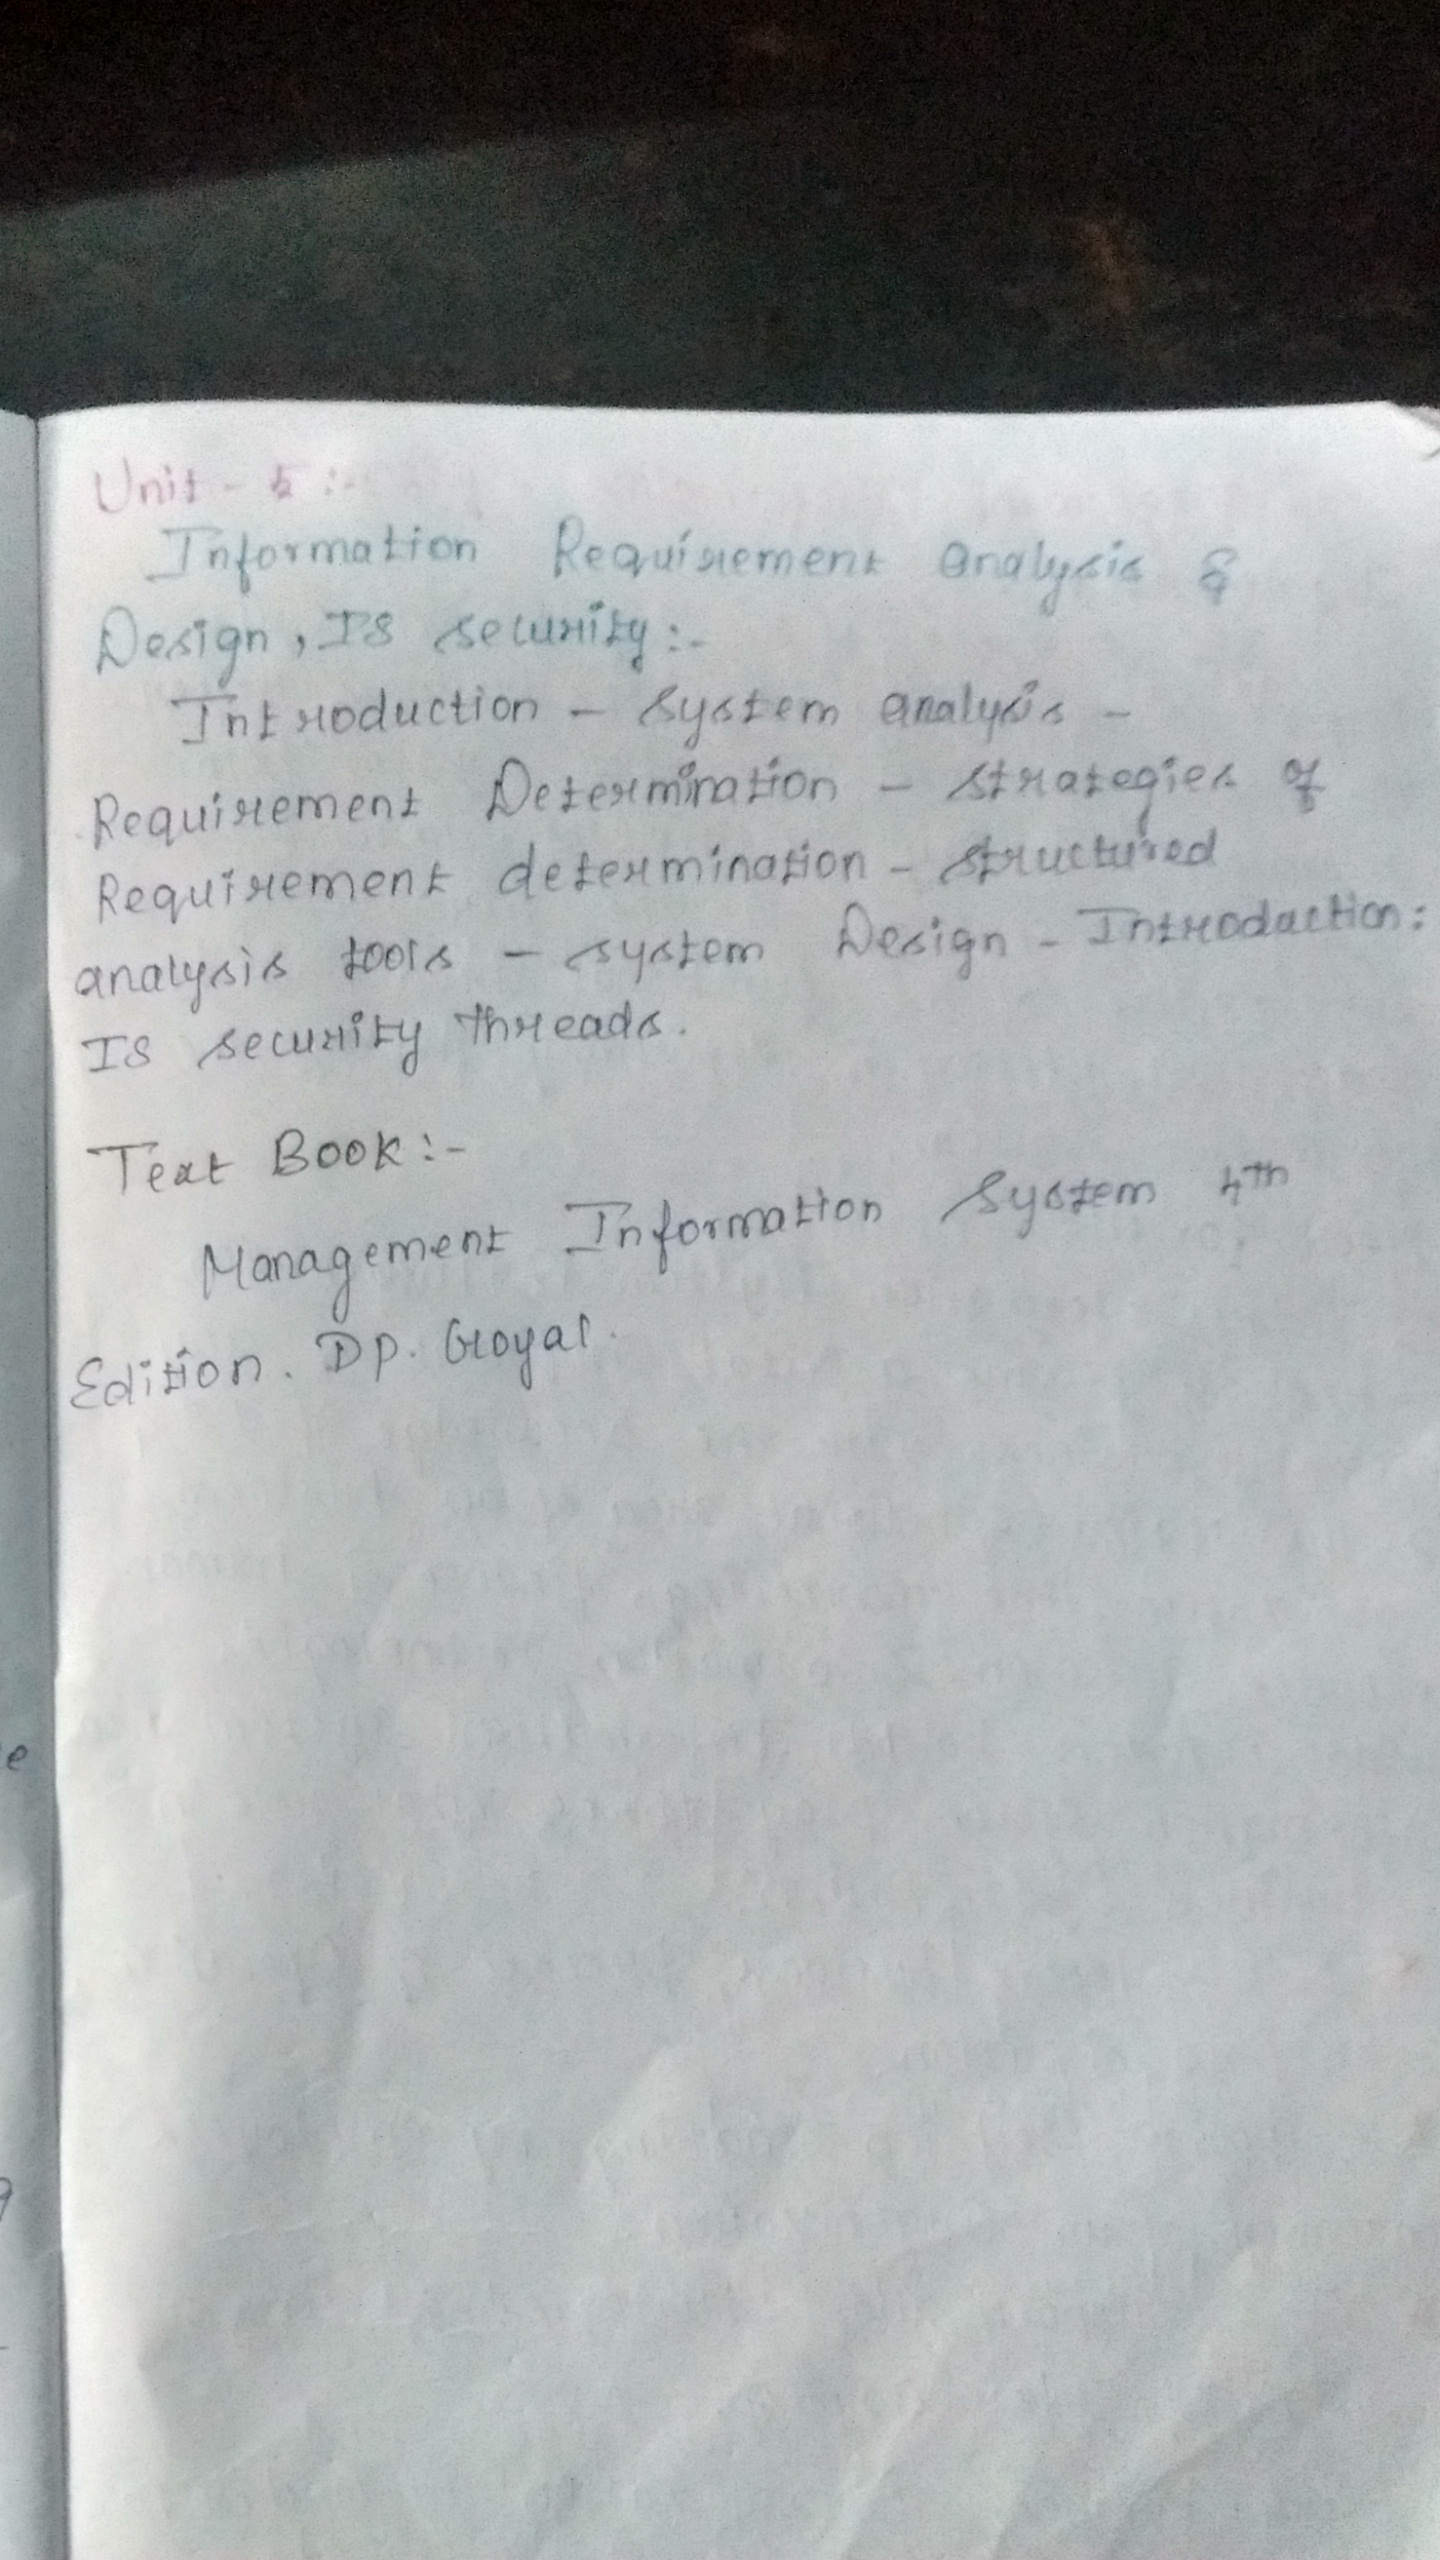 Unit - 5 :-
Information Requirement analysis &
Design, IS security :-
Introduction - system analysis -
Requirement Determination - strategies of
Requirement determination - structured
analysis tools - system Design - Introduction:
IS security threads.
Text Book :-
Management Information System 4th
Edition. DP. Goyal.